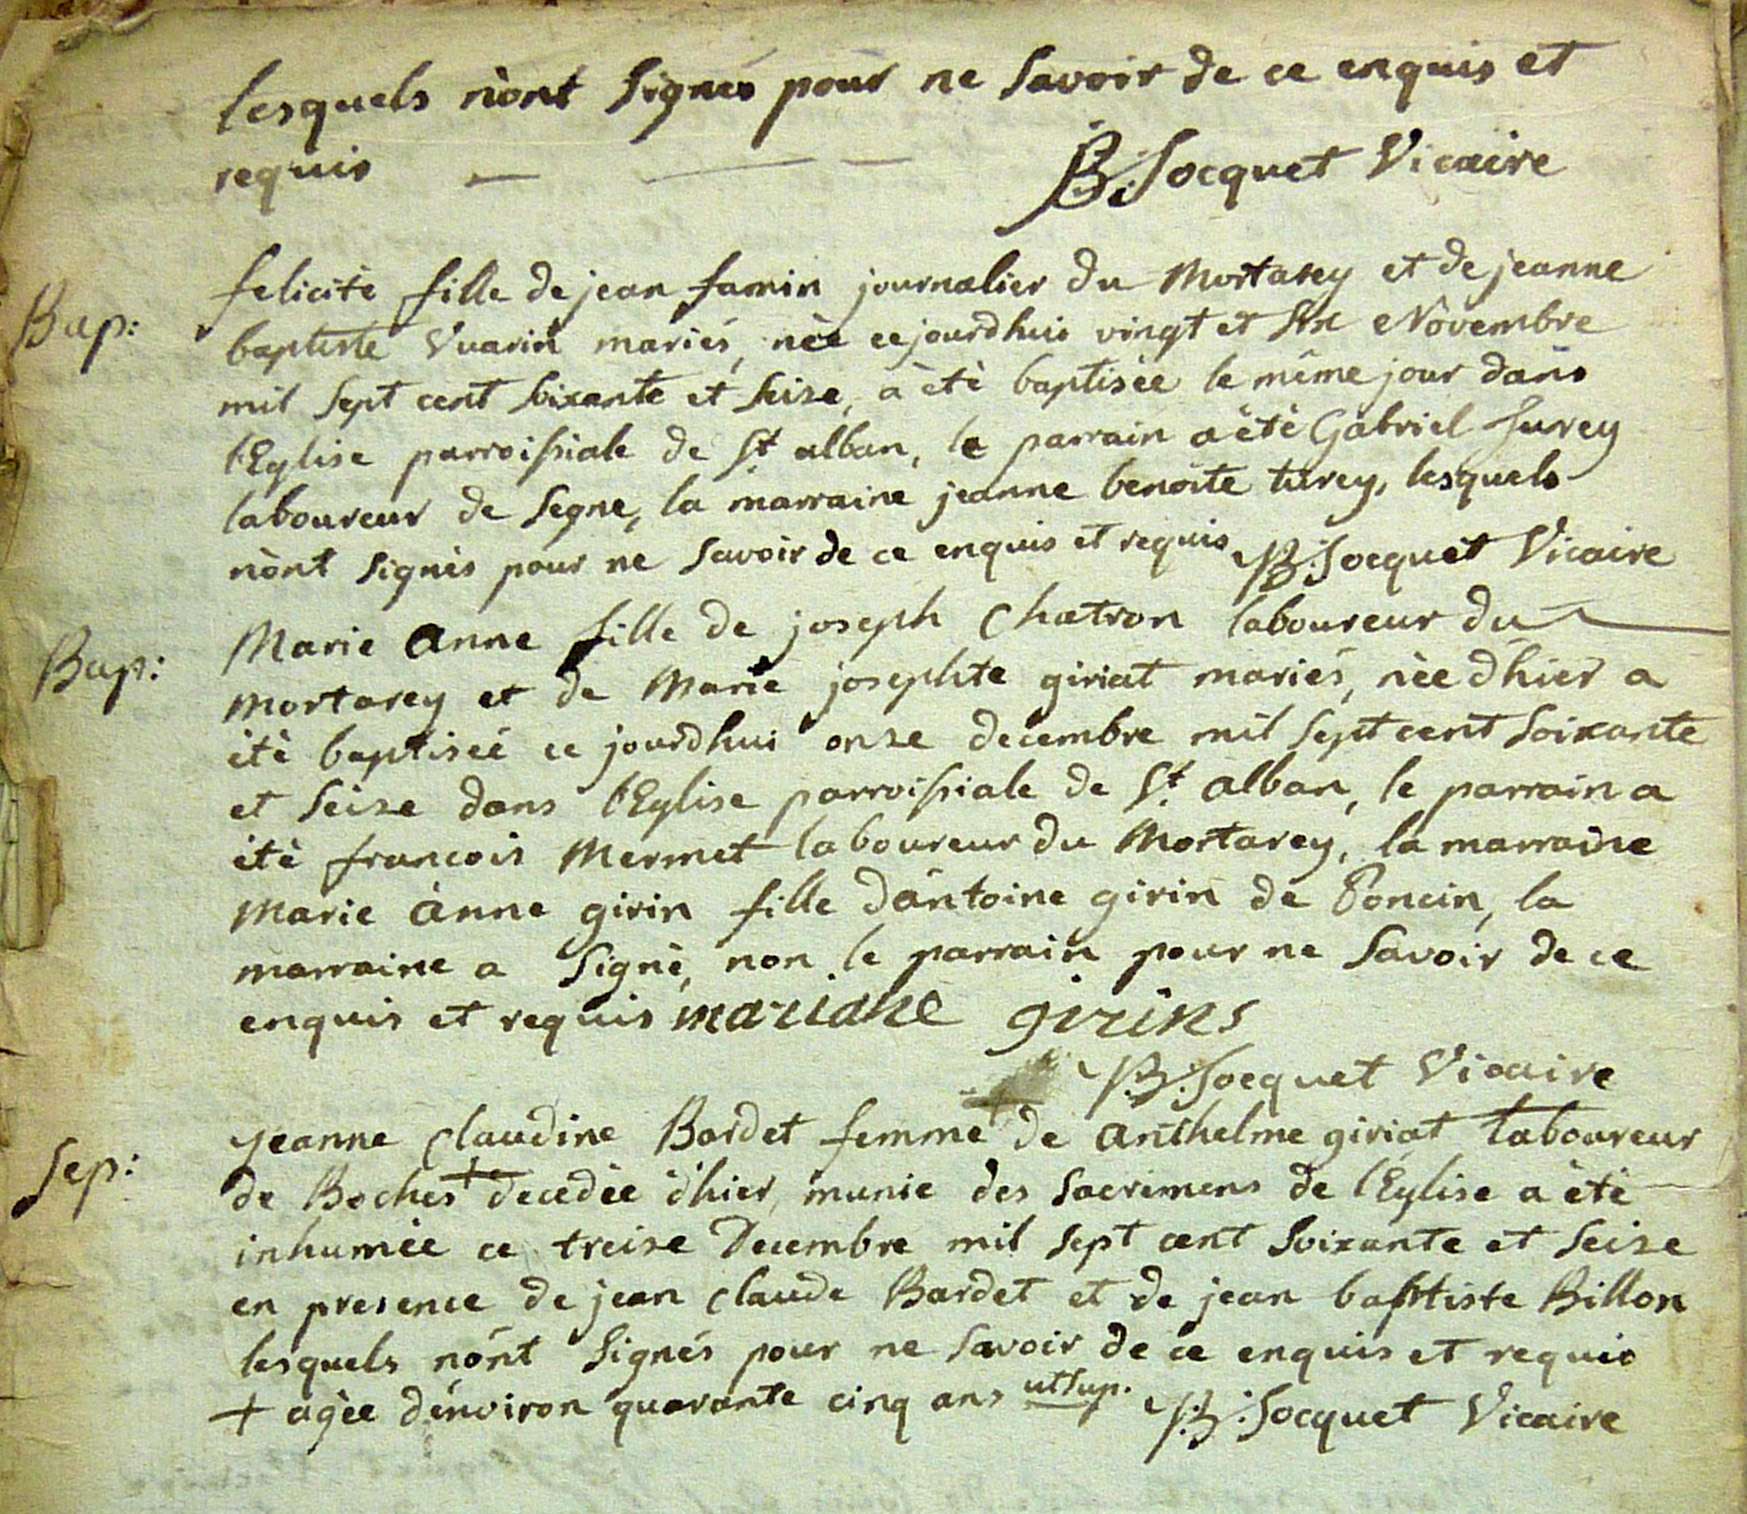 lesquels nont signés pour ne savoir de ce enquis et
requis B: Jocquet Vicaire
Bap: felicité fille de jean famin journalier du Mortarey et de jeanne
baptiste Vuarin mariés, née cejourdhui vingt et six Novembre
mil sept cent soixante et seize, a été baptisée le même jour dans
l'Eglise parroissiale de St alban, le parrain a été Gabriel Jurey
laboureur de Segne, la marraine jeanne benoite turey, lesquels
nont signés pour ne savoir de ce enquis et requis B: Jocquet Vicaire
Bap: Marie Anne fille de joseph Chatron laboureur du
Mortarey et de Marie josephte giriat mariés, née d'hier a
été baptisée ce jourdhui onze decembre mil sept cent soixante
et seize dans l'Eglise parroissiale de St alban, le parrain a
été francois Mermet laboureur du Mortarey, la marraine
Marie Anne girin fille d'antoine girin de Poncin, la
marraine a signé, non le parrain pour ne savoir de ce
enquis et requis mariane girins
B: Jocquet Vicaire
Sep: Jeanne Claudine Bardet femme de Anthelme giriat laboureur
de Boches + decedée d'hier, munie des sacremens de l'Eglise a été
inhumée ce treize Decembre mil sept cent soixante et seize
en presence de jean Claude Bardet et de jean baptiste Billon
lesquels nont signés pour ne savoir de ce enquis et requis
+ agée d'environ quarante cinq ans ut sup. B: Jocquet Vicaire